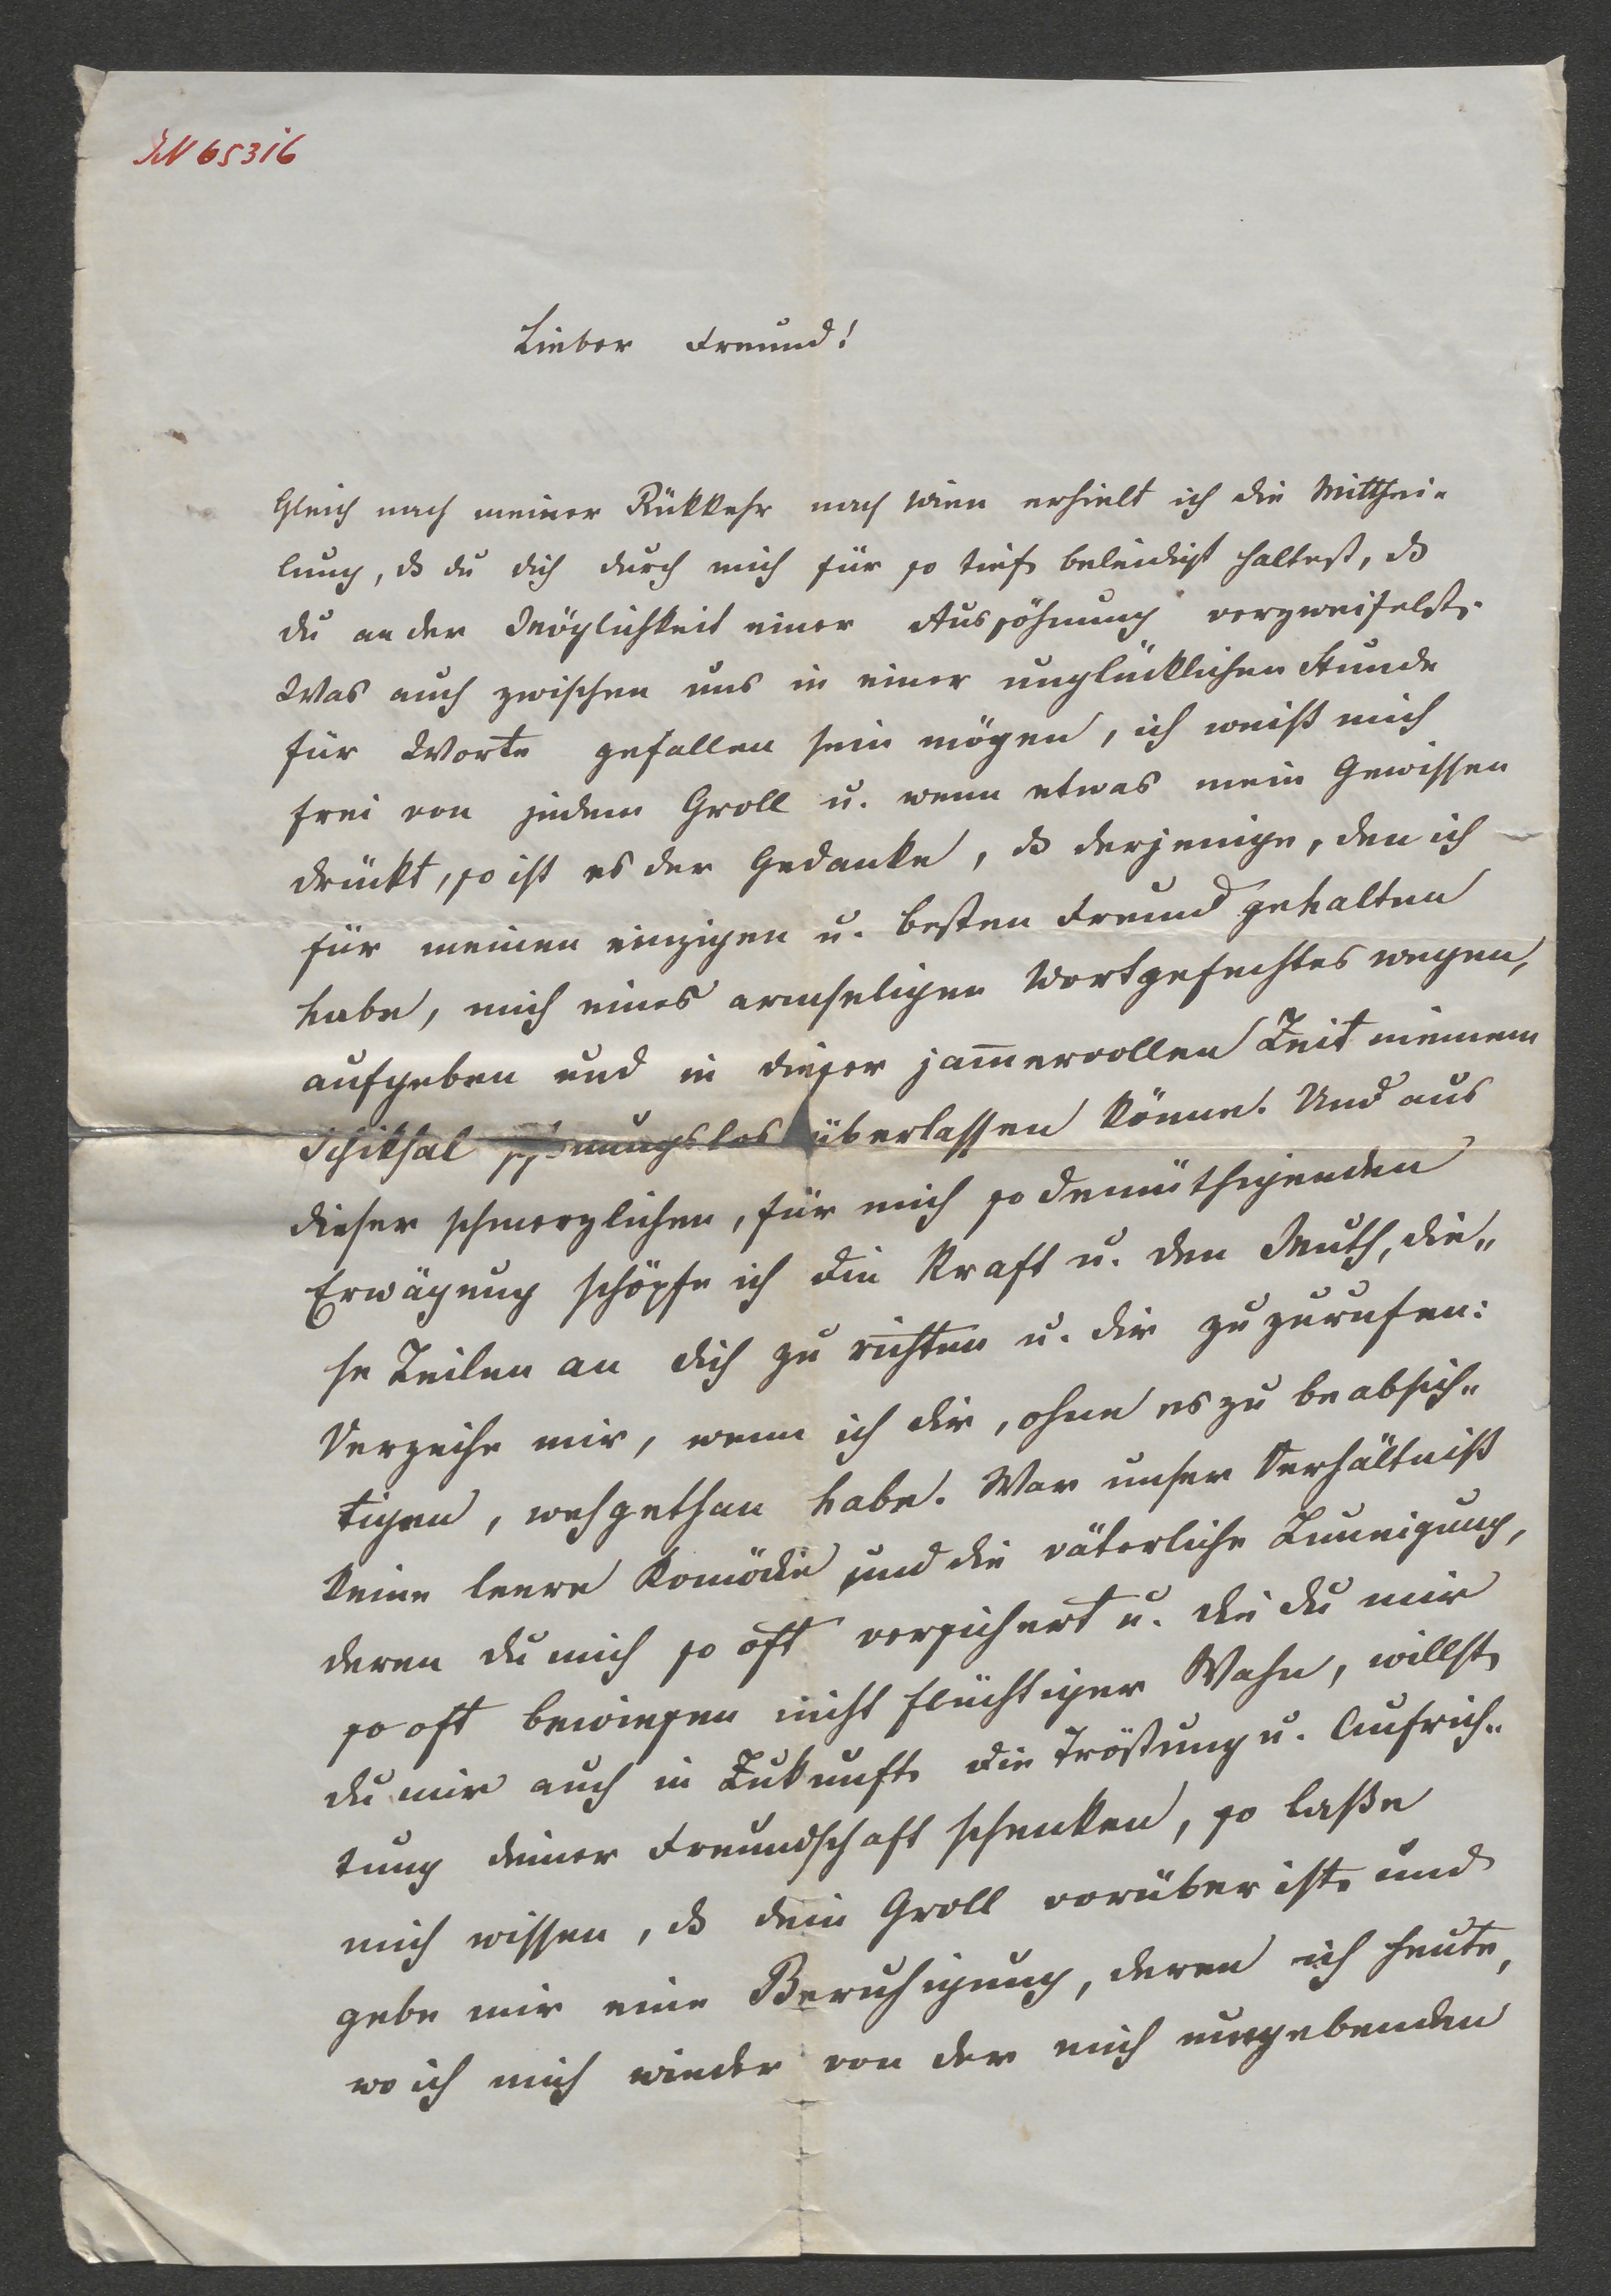 IN 65316
Lieber Freund!
Gleich nach meiner Rükkehr nach Wien erhielt ich die Mitthei-
lung, dß du dich durch mich für so tief beleidigt haltest, dß
du an der Möglichkeit einer Aussöhnung verzweifelst.
Was auch zwischen uns in einer unglücklichen Stunde
für Worte gefallen sein mögen, ich weiß mich
frei von jedem Groll u. wenn etwas mein Gewissen
drückt, so ist es der Gedanke, dß derjenige, den ich
für meinen einzigen u. besten Freund gehalten
habe, mich eines armseligen Wortgefechtes wegen,
aufgeben und in dieser jam̅ervollen Zeit meinem
Schiksal schonungslos überlassen könne. Und aus
dieser schmerzlichen, für mich so demüthigenden
Erwägung schöpfe ich die Kraft u. den Muth, die„
se Zeilen an dich zu richten u. dir zuzurufen:
Verzeihe mir, wenn ich dir, ohne es zu beabsich„
tigen, wehgethan habe. War unser Verhältniß
keine leere Komödie und die väterliche Zuneigung,
deren du mich so oft versichert u. die du mir
so oft bewiesen nicht flüchtiger Wahn, willst
du mir auch in Zukunft die Tröstung u. Aufrich„
tung deiner Freundschaft schenken, so laße
mich wissen, dß dein Groll vorüber ist und
gebe mir eine Beruhigung, deren ich heute,
wo ich mich wieder von der mich umgebenden